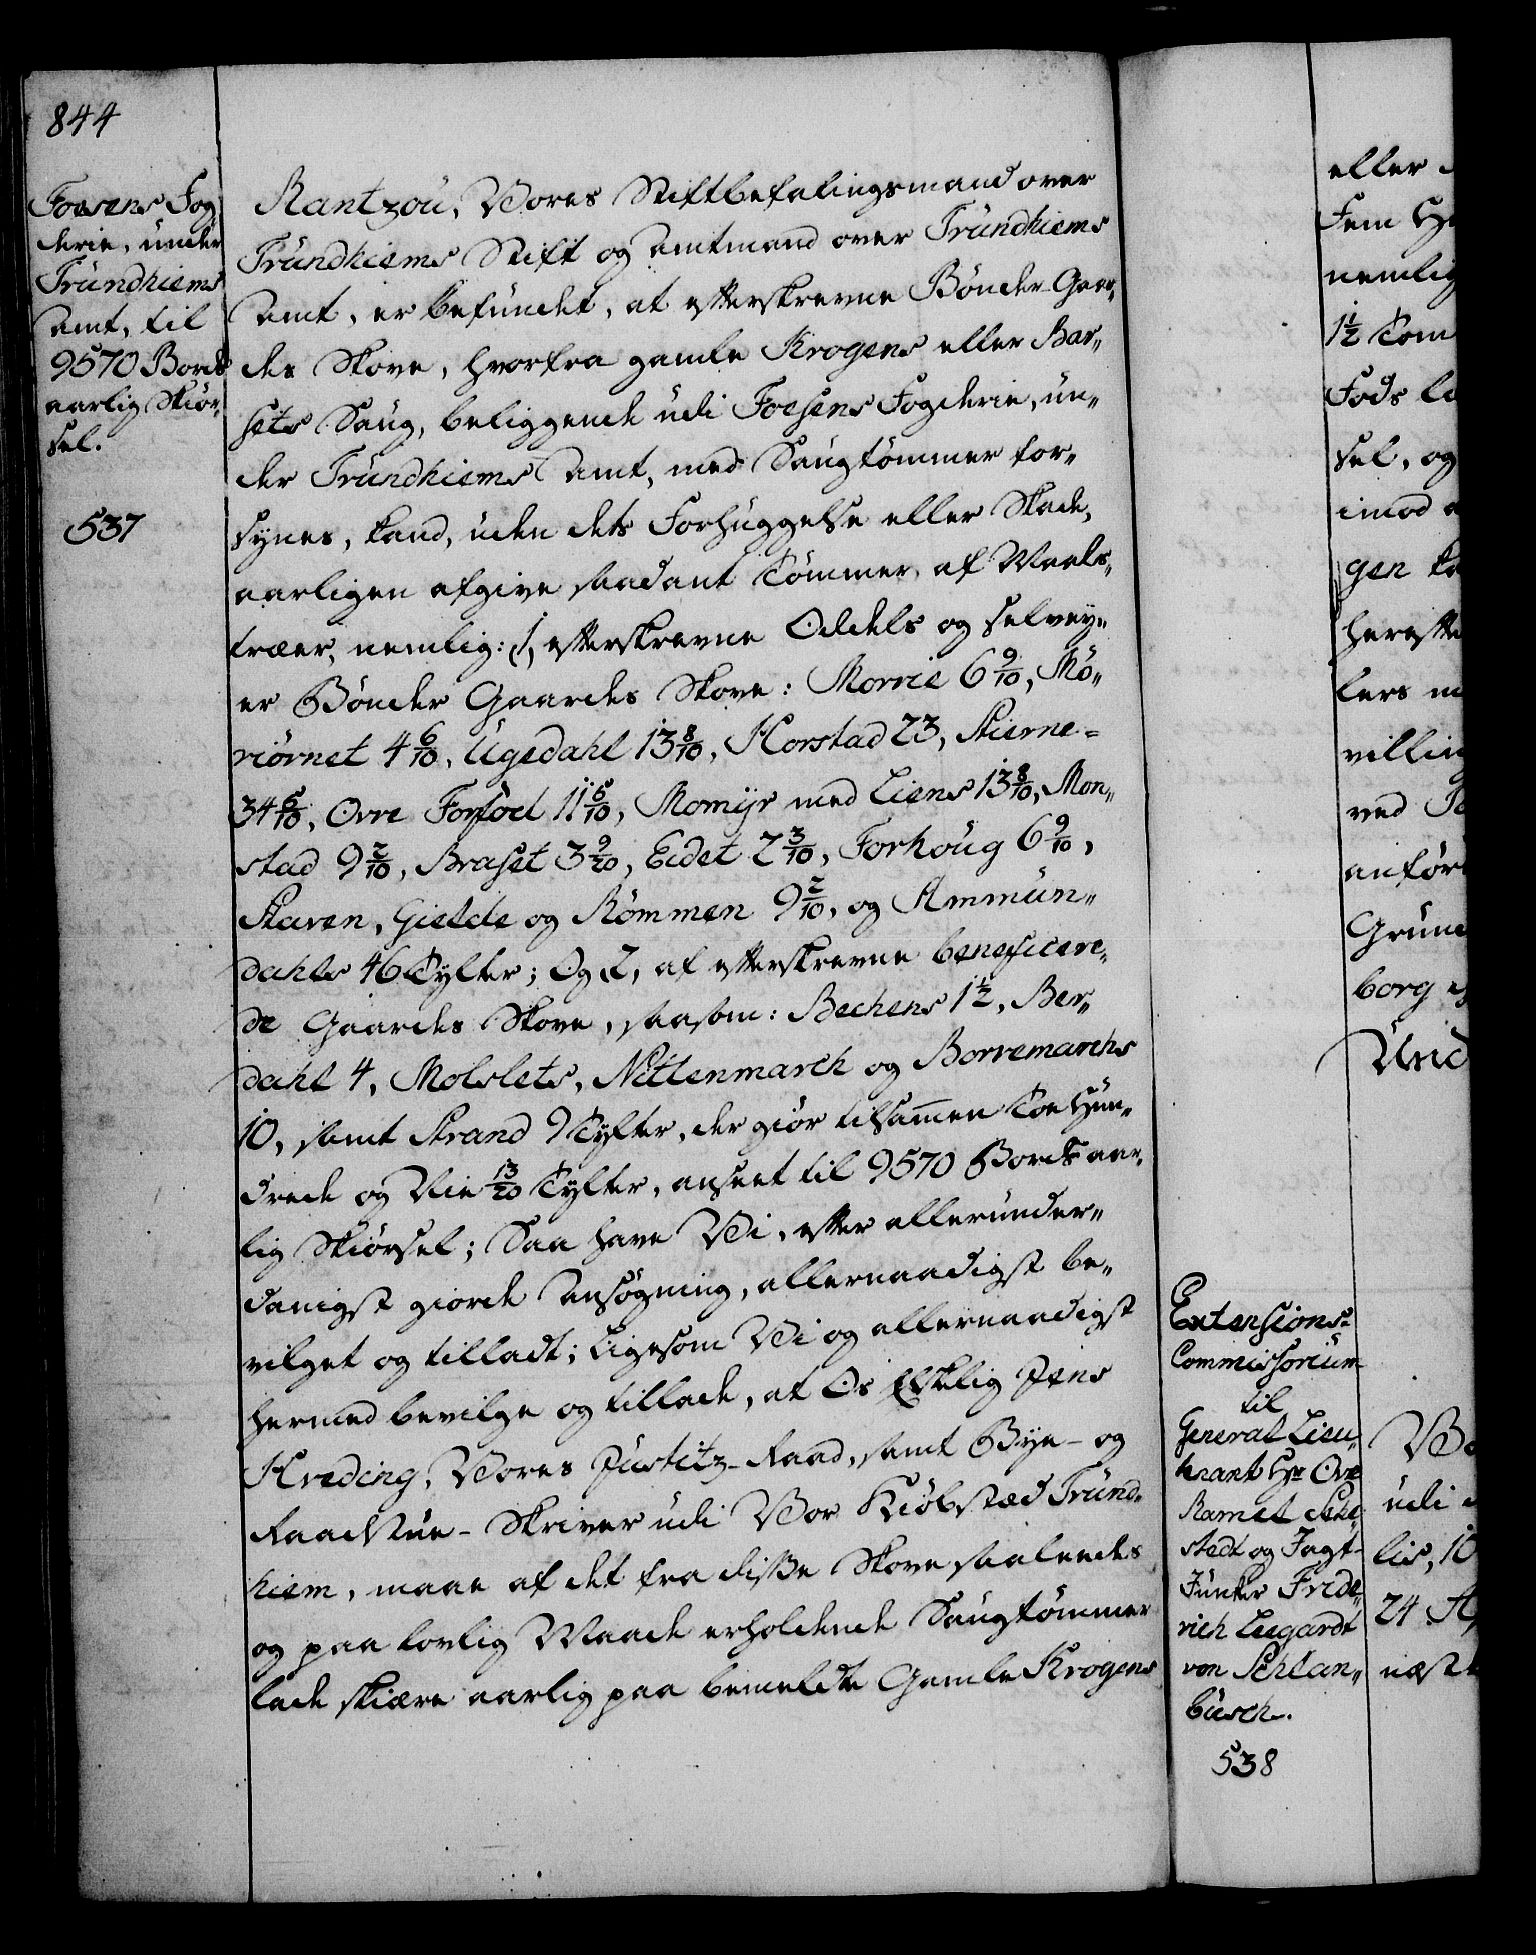 844
Foesens Fog
derie, under
Trundhiems
Amt, til
9570 Bords
aarlig Skiør„
sel.
537
Rantzou, Vores Stiftbefalingsmand over
Trundhiems Stift og Amtmand over Trundhiems
Amt, er befundet, at efterskrevne Bønder-Gaar„
des Skove, hvorfra gamle Krogens eller Bar„
sets Saug, beliggende udi Foesens Fogderie, un„
der Trundhiems Amt, med Saugtömmer for„
synes, kand, uden dets Forhuggelse eller Skade,
aarligen afgive saadant Tömmer af Maals„
træer, nemlig: 1, efterskrevne Oddels og selvey„
er Bønder Gaardes Skove: Morrie 6 9/10, Mö„
riörnet 4 6/10, Ugedahl 13 8/10, Horstad 23, Stierne-
34 5/10, Ovre Forsöel 11 5/10, Momyr med Liens 13 8/10, Mon„
stad 9 2/10, Braset 3 9/20, Eidet 2 3/10, Forhoug 6 9/10,
Staven, Gielde og Römmen 9 2/10, og Ammun„
dahls 46 Tylter; Og 2, af efterskrevne beneficere„
de Gaardes Skove, saasom: Bechens 1 1/2, Ber„
dahl 4, Molslets, Nittenmarch og Borremarchs
10, samt Strand 9 Tylter, der giør tilsammen Toe Hun„
drede og Nie 13/20 Tylter, anseet til 9570 Bords aar„
lig Skiørsel; Saa have Vi, efter allerunder„
danigst giorde Ansøgning, allernaadigst be„
vilget og tilladt; Ligesom Vi og allernaadigst
hermed bevilge og tillade, at Os Elskelig Jens
Hveding, Vores Justitz-Raad, samt Bye- og
Raadstue-Skriver udi Vor Kiøbstæd Trund„
hiem, maae af det fra disse Skove saaledes
og paa lovlig Maade erholdende Saugtömmer
lade skiære aarlig paa bemeldte Gamle Krogens
Extensions-
Commissorium
til
General Lieu„
tenant Hr Ove
Ramel Sehe„
stedt og Jagt-
Junker Fride„
rich Leegardt
von Schlan„
busch.
538
eller
Fem
nemlig
1 1/2 Tom
Fods
sel, og
imod
gen
herefte
lers
ved
anför
Grun
borg
udi
lis, 10
24
næst